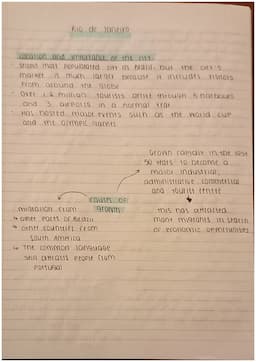 Rio de Janeiro
Location and importance of the city
· second most populated city in Brazil but the city's
market is much larger because it includes visitors
from around the globe
· Over 1.2 million tourists arrive through 6 harbours
and 3 airports in a normal year
· Has hosted major events such as the World Cup
and the Olympic Games
Grown rapidly in the last
50 years to become a
major industrial,
administrative, commercial
and tourist centre
causes of
growth
migration from:
↳ other parts of Brazil
↳ other countries from
South America
↳ The common language
still attracts people from
Portugal
This has attracted
more migrants in search
of economic opportunities